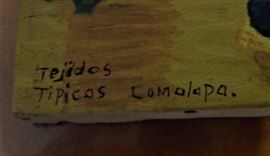 Tejidos
Tipicos Comalapa.